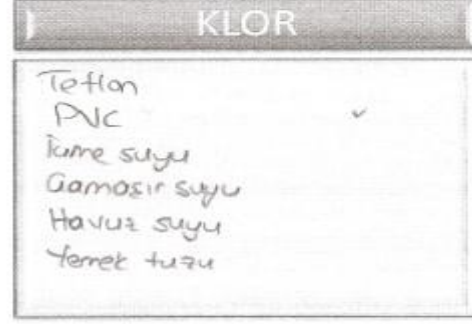 KLOR
Teflon
PVC ✓
İçme suyu
Çamaşır suyu
Havuz suyu
Yemek tuzu